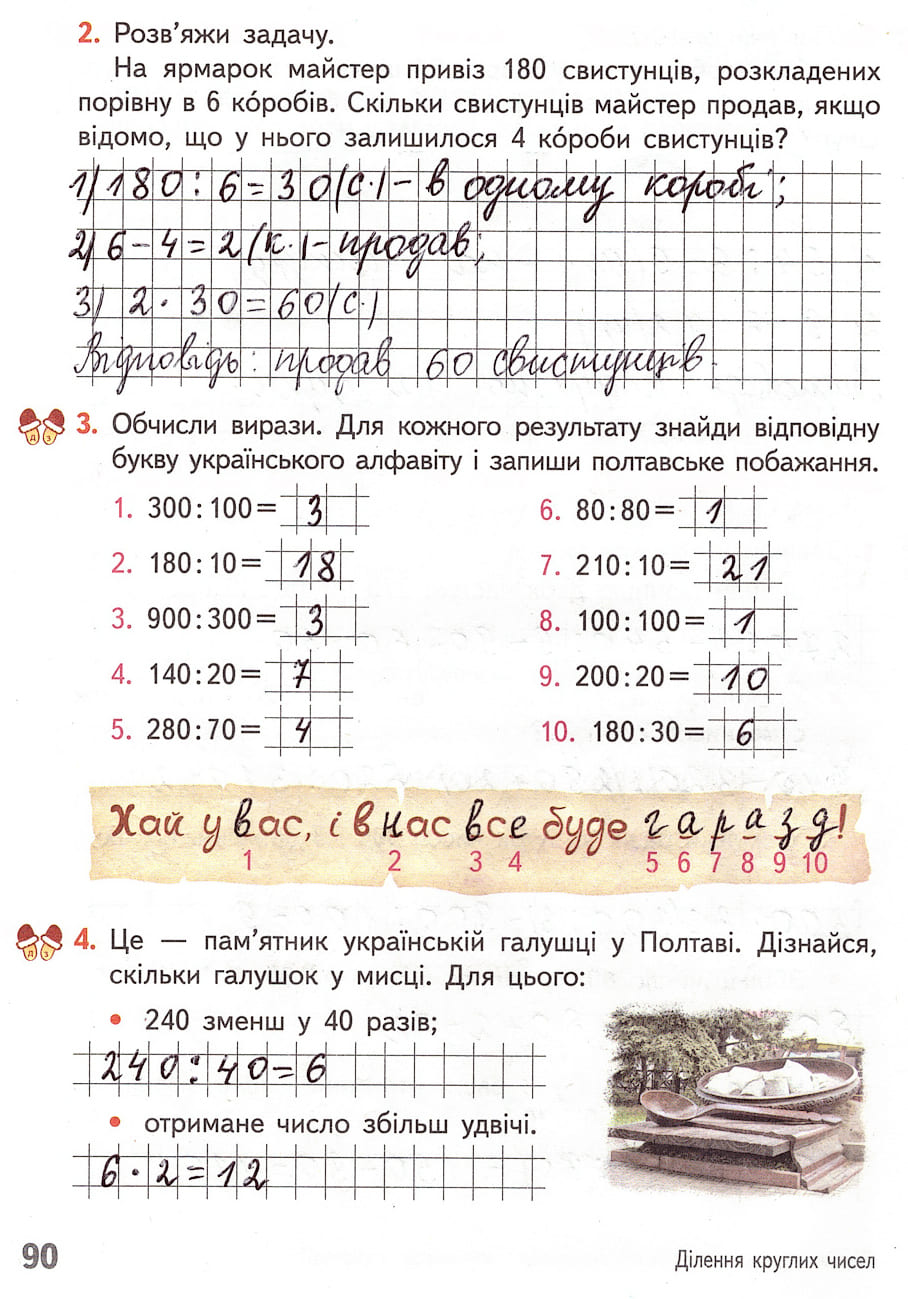 2. Розв'яжи задачу.
На ярмарок майстер привіз 180 свистунців, розкладених
порівну в 6 ко́робів. Скільки свистунців майстер продав, якщо
відомо, що у нього залишилося 4 ко́роби свистунців?
1) 180 : 6 = 30 (с.) – в одному коробі;
2) 6 – 4 = 2 (к.) – продав;
3) 2 · 30 = 60 (с.)
Відповідь: продав 60 свистунців.
д з
3. Обчисли вирази. Для кожного результату знайди відповідну
букву українського алфавіту і запиши полтавське побажання.
1. 300 : 100 = 3
2. 180 : 10 = 18
3. 900 : 300 = 3
4. 140 : 20 = 7
5. 280 : 70 = 4
6. 80 : 80 = 1
7. 210 : 10 = 21
8. 100 : 100 = 1
9. 200 : 20 = 10
10. 180 : 30 = 6
Хай у вас, і в нас все буде гаразд!
1 2 3 4 5 6 7 8 9 10
д з
4. Це — пам'ятник українській галушці у Полтаві. Дізнайся,
скільки галушок у мисці. Для цього:
• 240 зменш у 40 разів;
240 : 40 = 6
• отримане число збільш удвічі.
6 · 2 = 12
90
Ділення круглих чисел